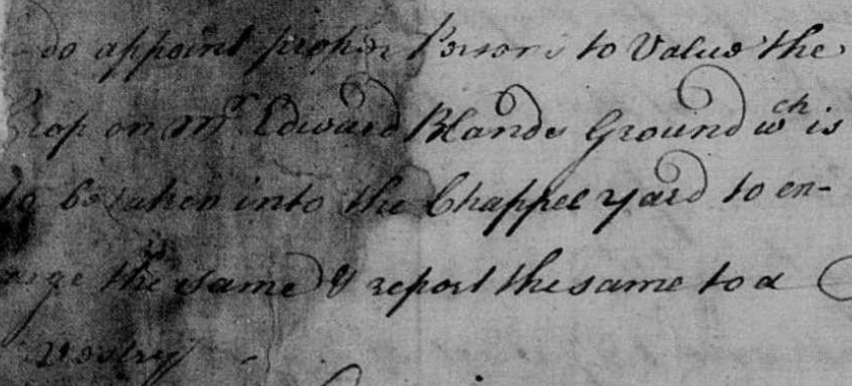 do appoint proper Persons to Value the
Crop on Mr. Edward Blands Ground wch is
to be taken into the Chappel yard to en-
large the same & report the same to a
Vestry -